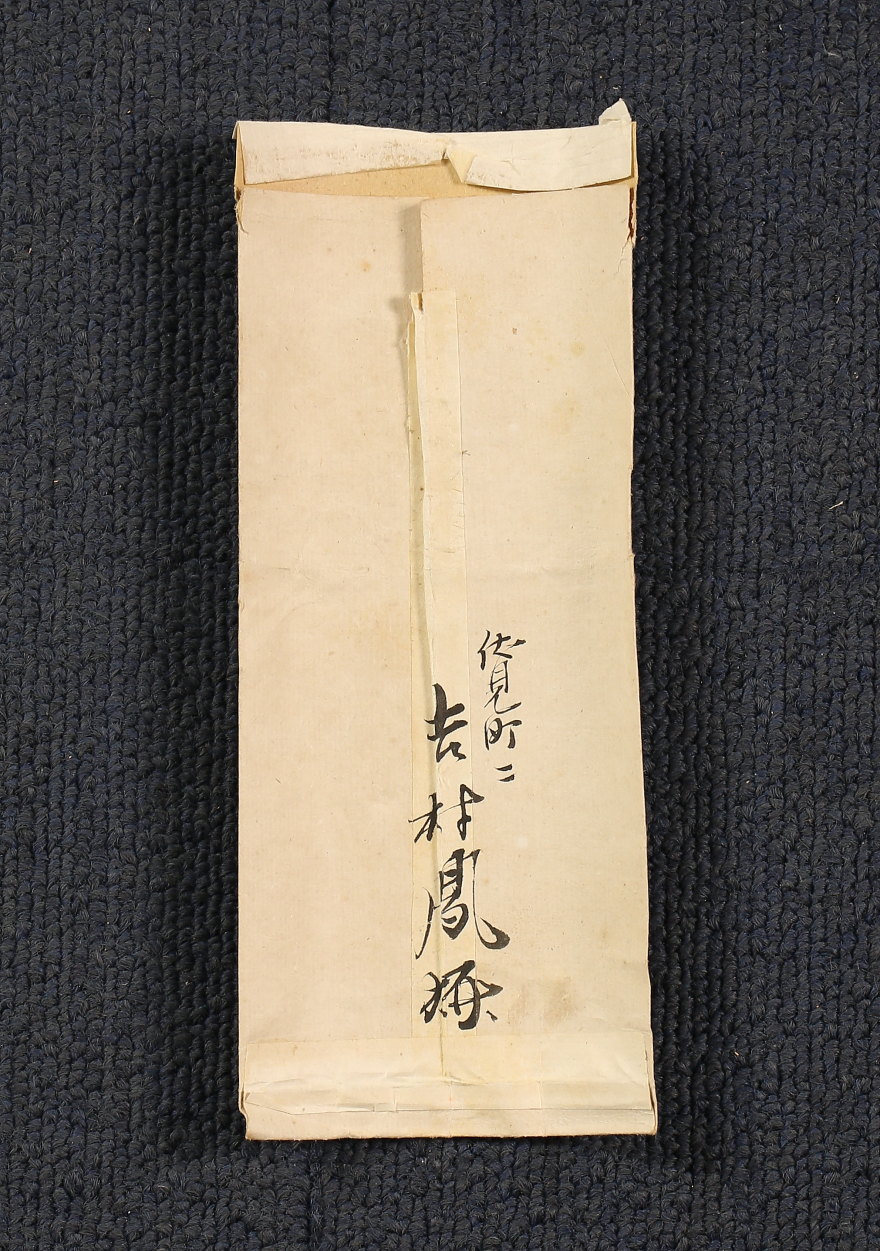 伏見町二
吉村鳳